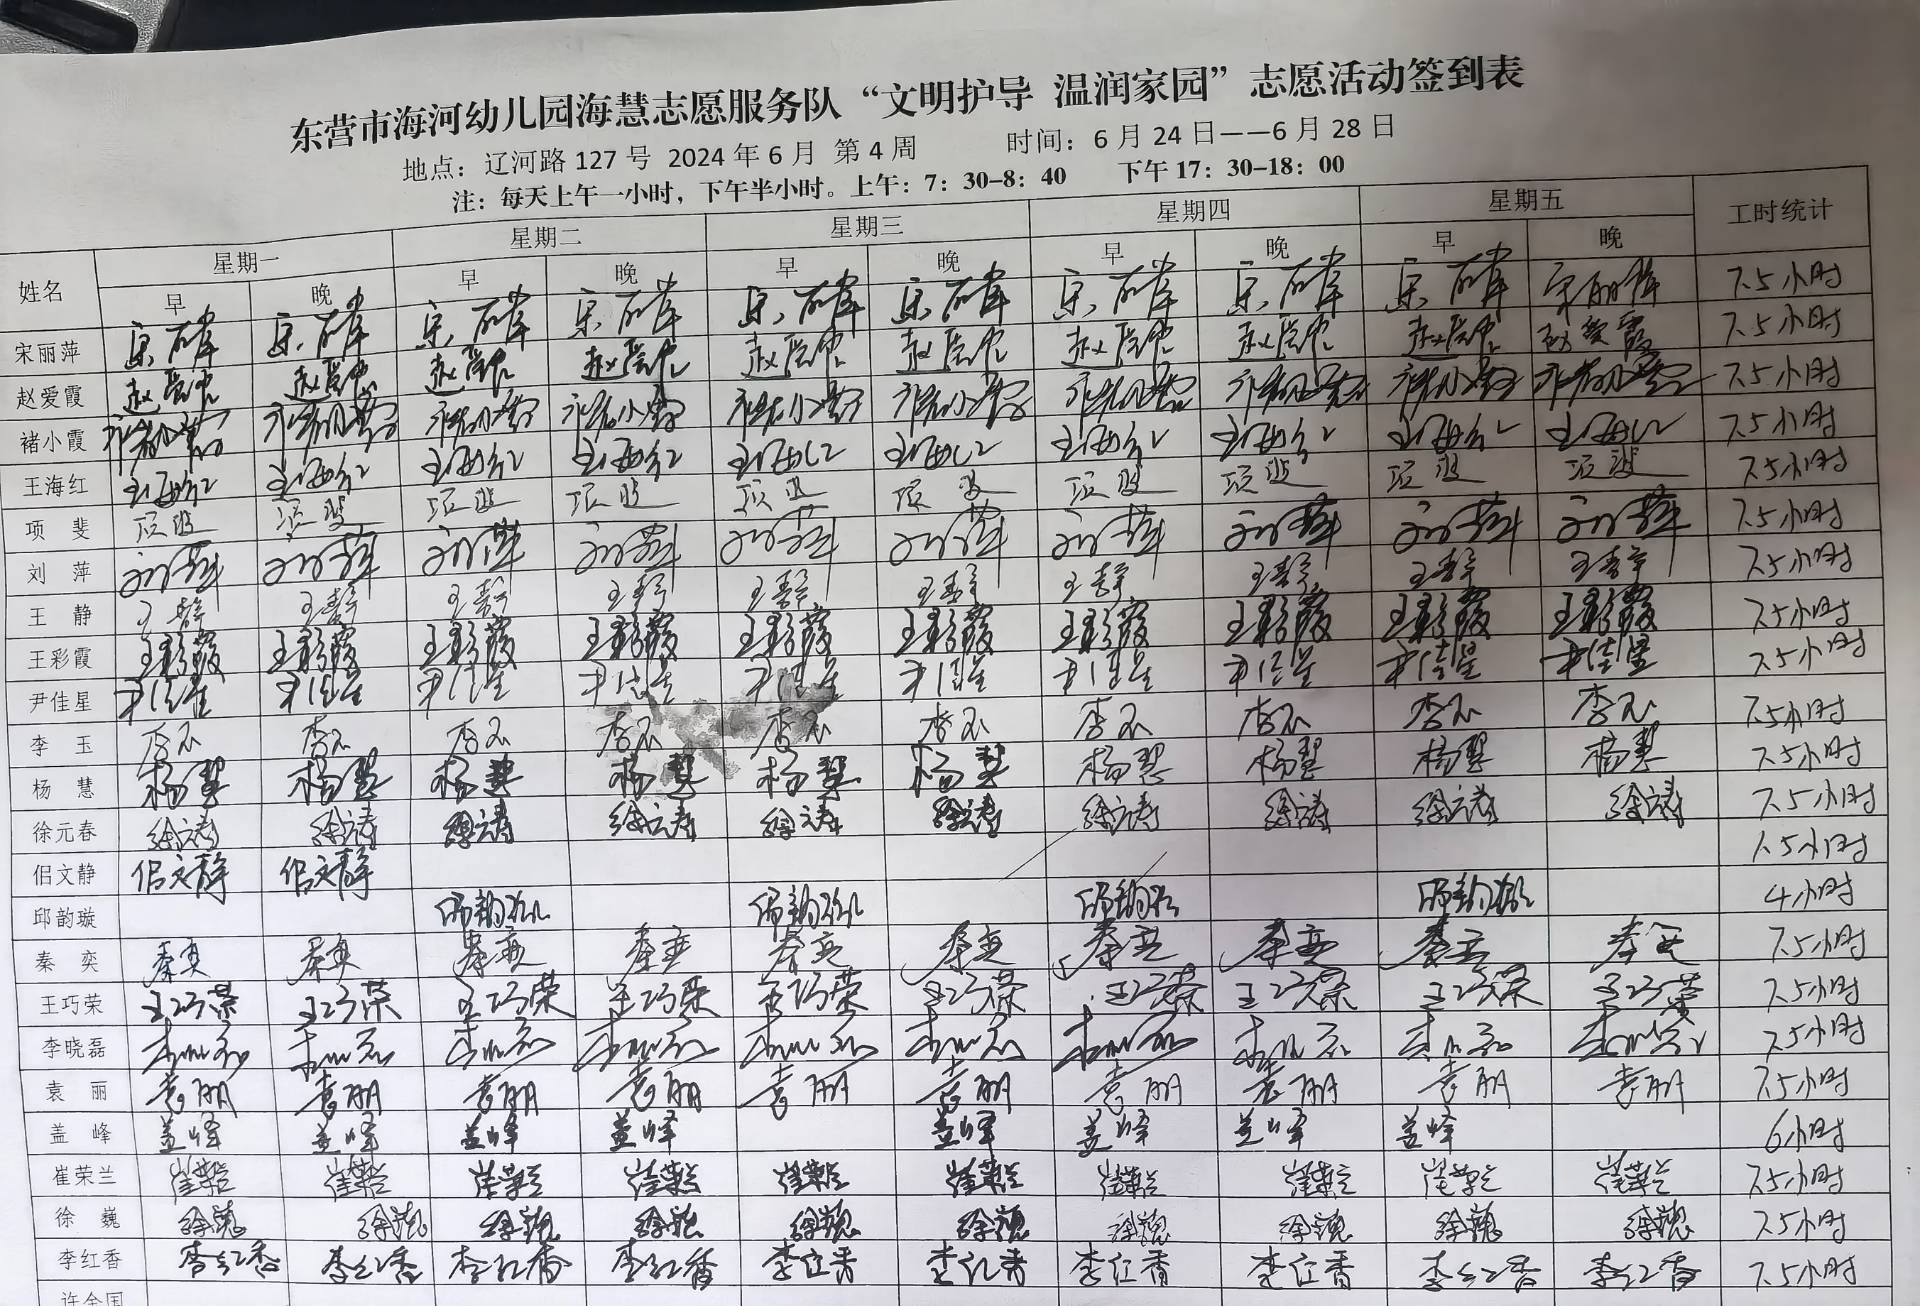 东营市海河幼儿园海慧志愿服务队“文明护导 温润家园”志愿活动签到表
地点：辽河路 127 号 2024 年 6 月 第 4 周 时间：6 月 24 日——6 月 28 日
注：每天上午一小时，下午半小时。上午：7：30-8：40 下午 17：30-18：00
姓名 星期一 星期二 星期三 星期四 星期五 工时统计
早 晚 早 晚 早 晚 早 晚 早 晚
宋丽萍 宋丽萍 宋丽萍 宋丽萍 宋丽萍 宋丽萍 宋丽萍 宋丽萍 宋丽萍 宋丽萍 宋丽萍 7.5小时
赵爱霞 赵爱霞 赵爱霞 赵爱霞 赵爱霞 赵爱霞 赵爱霞 赵爱霞 赵爱霞 赵爱霞 赵爱霞 7.5小时
褚小霞 褚小霞 褚小霞 褚小霞 褚小霞 褚小霞 褚小霞 褚小霞 褚小霞 褚小霞 褚小霞 7.5小时
王海红 王海红 王海红 王海红 王海红 王海红 王海红 王海红 王海红 王海红 王海红 7.5小时
项 斐 项斐 项斐 项斐 项斐 项斐 项斐 项斐 项斐 项斐 项斐 7.5小时
刘 萍 刘萍 刘萍 刘萍 刘萍 刘萍 刘萍 刘萍 刘萍 刘萍 刘萍 7.5小时
王 静 王静 王静 王静 王静 王静 王静 王静 王静 王静 王静 7.5小时
王彩霞 王彩霞 王彩霞 王彩霞 王彩霞 王彩霞 王彩霞 王彩霞 王彩霞 王彩霞 王彩霞 7.5小时
尹佳星 尹佳星 尹佳星 尹佳星 尹佳星 尹佳星 尹佳星 尹佳星 尹佳星 尹佳星 尹佳星 7.5小时
李 玉 李玉 李玉 李玉 李玉 李玉 李玉 李玉 李玉 李玉 李玉 7.5小时
杨 慧 杨慧 杨慧 杨慧 杨慧 杨慧 杨慧 杨慧 杨慧 杨慧 杨慧 7.5小时
徐元春 徐元春 徐元春 徐元春 徐元春 徐元春 徐元春 徐元春 徐元春 徐元春 徐元春 7.5小时
佀文静 佀文静 佀文静 1.5小时
邱韵璇 邱韵璇 邱韵璇 邱韵璇 邱韵璇 4小时
秦 奕 秦奕 秦奕 秦奕 秦奕 秦奕 秦奕 秦奕 秦奕 秦奕 秦奕 7.5小时
王巧荣 王巧荣 王巧荣 王巧荣 王巧荣 王巧荣 王巧荣 王巧荣 王巧荣 王巧荣 王巧荣 7.5小时
李晓磊 李晓磊 李晓磊 李晓磊 李晓磊 李晓磊 李晓磊 李晓磊 李晓磊 李晓磊 李晓磊 7.5小时
袁 丽 袁丽 袁丽 袁丽 袁丽 袁丽 袁丽 袁丽 袁丽 袁丽 袁丽 7.5小时
盖 峰 盖峰 盖峰 盖峰 盖峰 盖峰 盖峰 盖峰 盖峰 6小时
崔荣兰 崔荣兰 崔荣兰 崔荣兰 崔荣兰 崔荣兰 崔荣兰 崔荣兰 崔荣兰 崔荣兰 崔荣兰 7.5小时
徐 巍 徐巍 徐巍 徐巍 徐巍 徐巍 徐巍 徐巍 徐巍 徐巍 徐巍 7.5小时
李红香 李红香 李红香 李红香 李红香 李红香 李红香 李红香 李红香 李红香 李红香 7.5小时